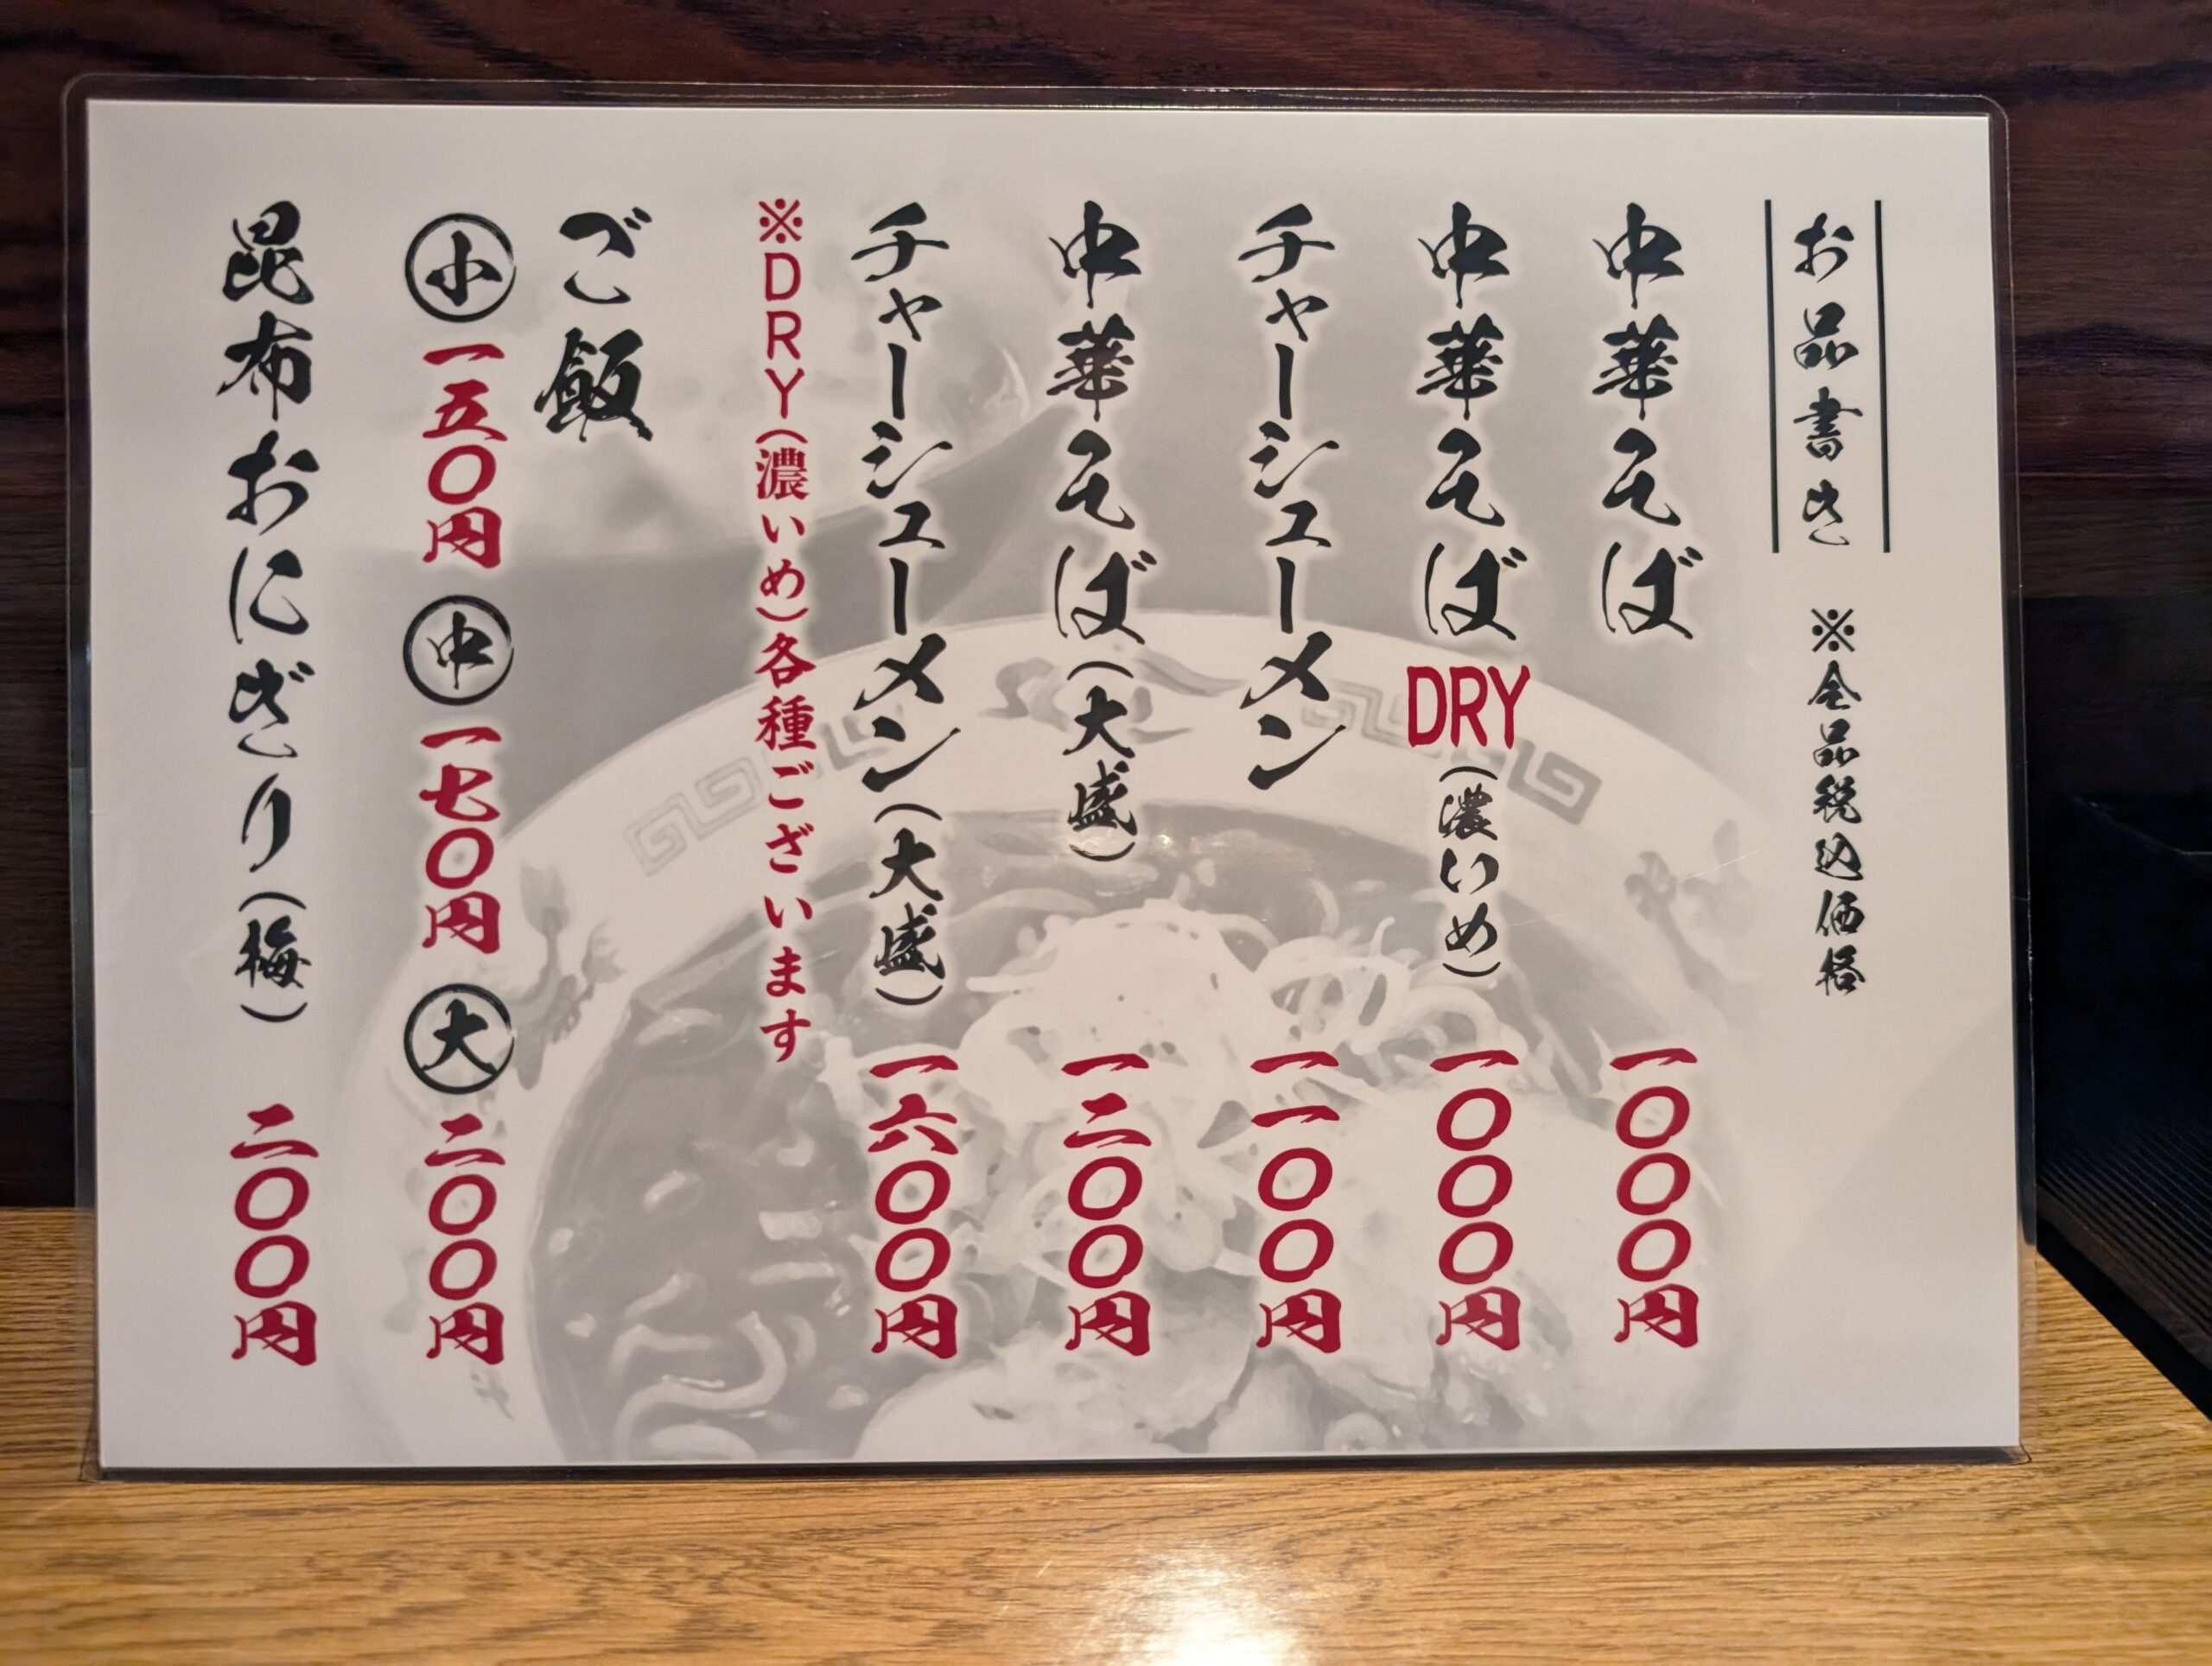 お品書き ※全品税込価格
中華そば 一〇〇〇円
中華そば DRY(濃いめ) 一〇〇〇円
チャーシューメン 一一〇〇円
中華そば(大盛) 一二〇〇円
チャーシューメン(大盛) 一六〇〇円
※DRY(濃いめ)各種ございます
ご飯
小 一五〇円 中 一七〇円 大 二〇〇円
昆布おにぎり(梅) 二〇〇円